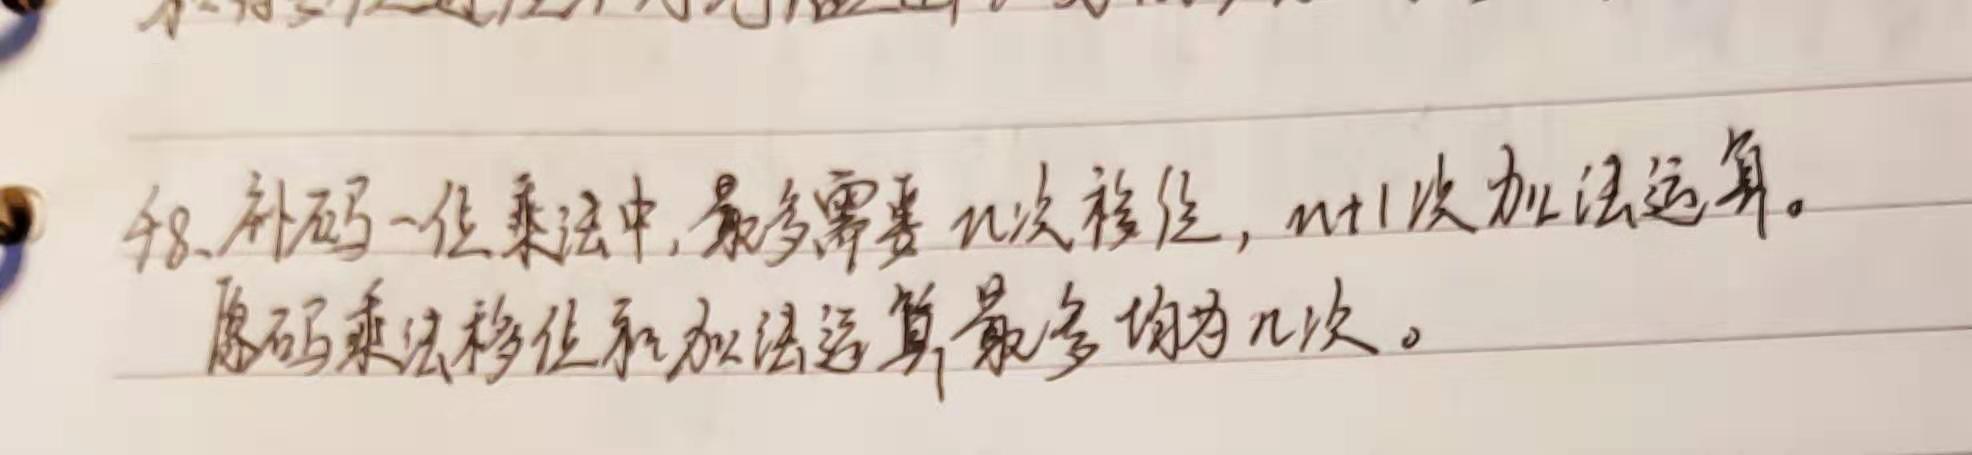 48、补码一位乘法中,最多需要n次移位,n+1次加法运算。
原码乘法移位和加法运算最多均为n次。